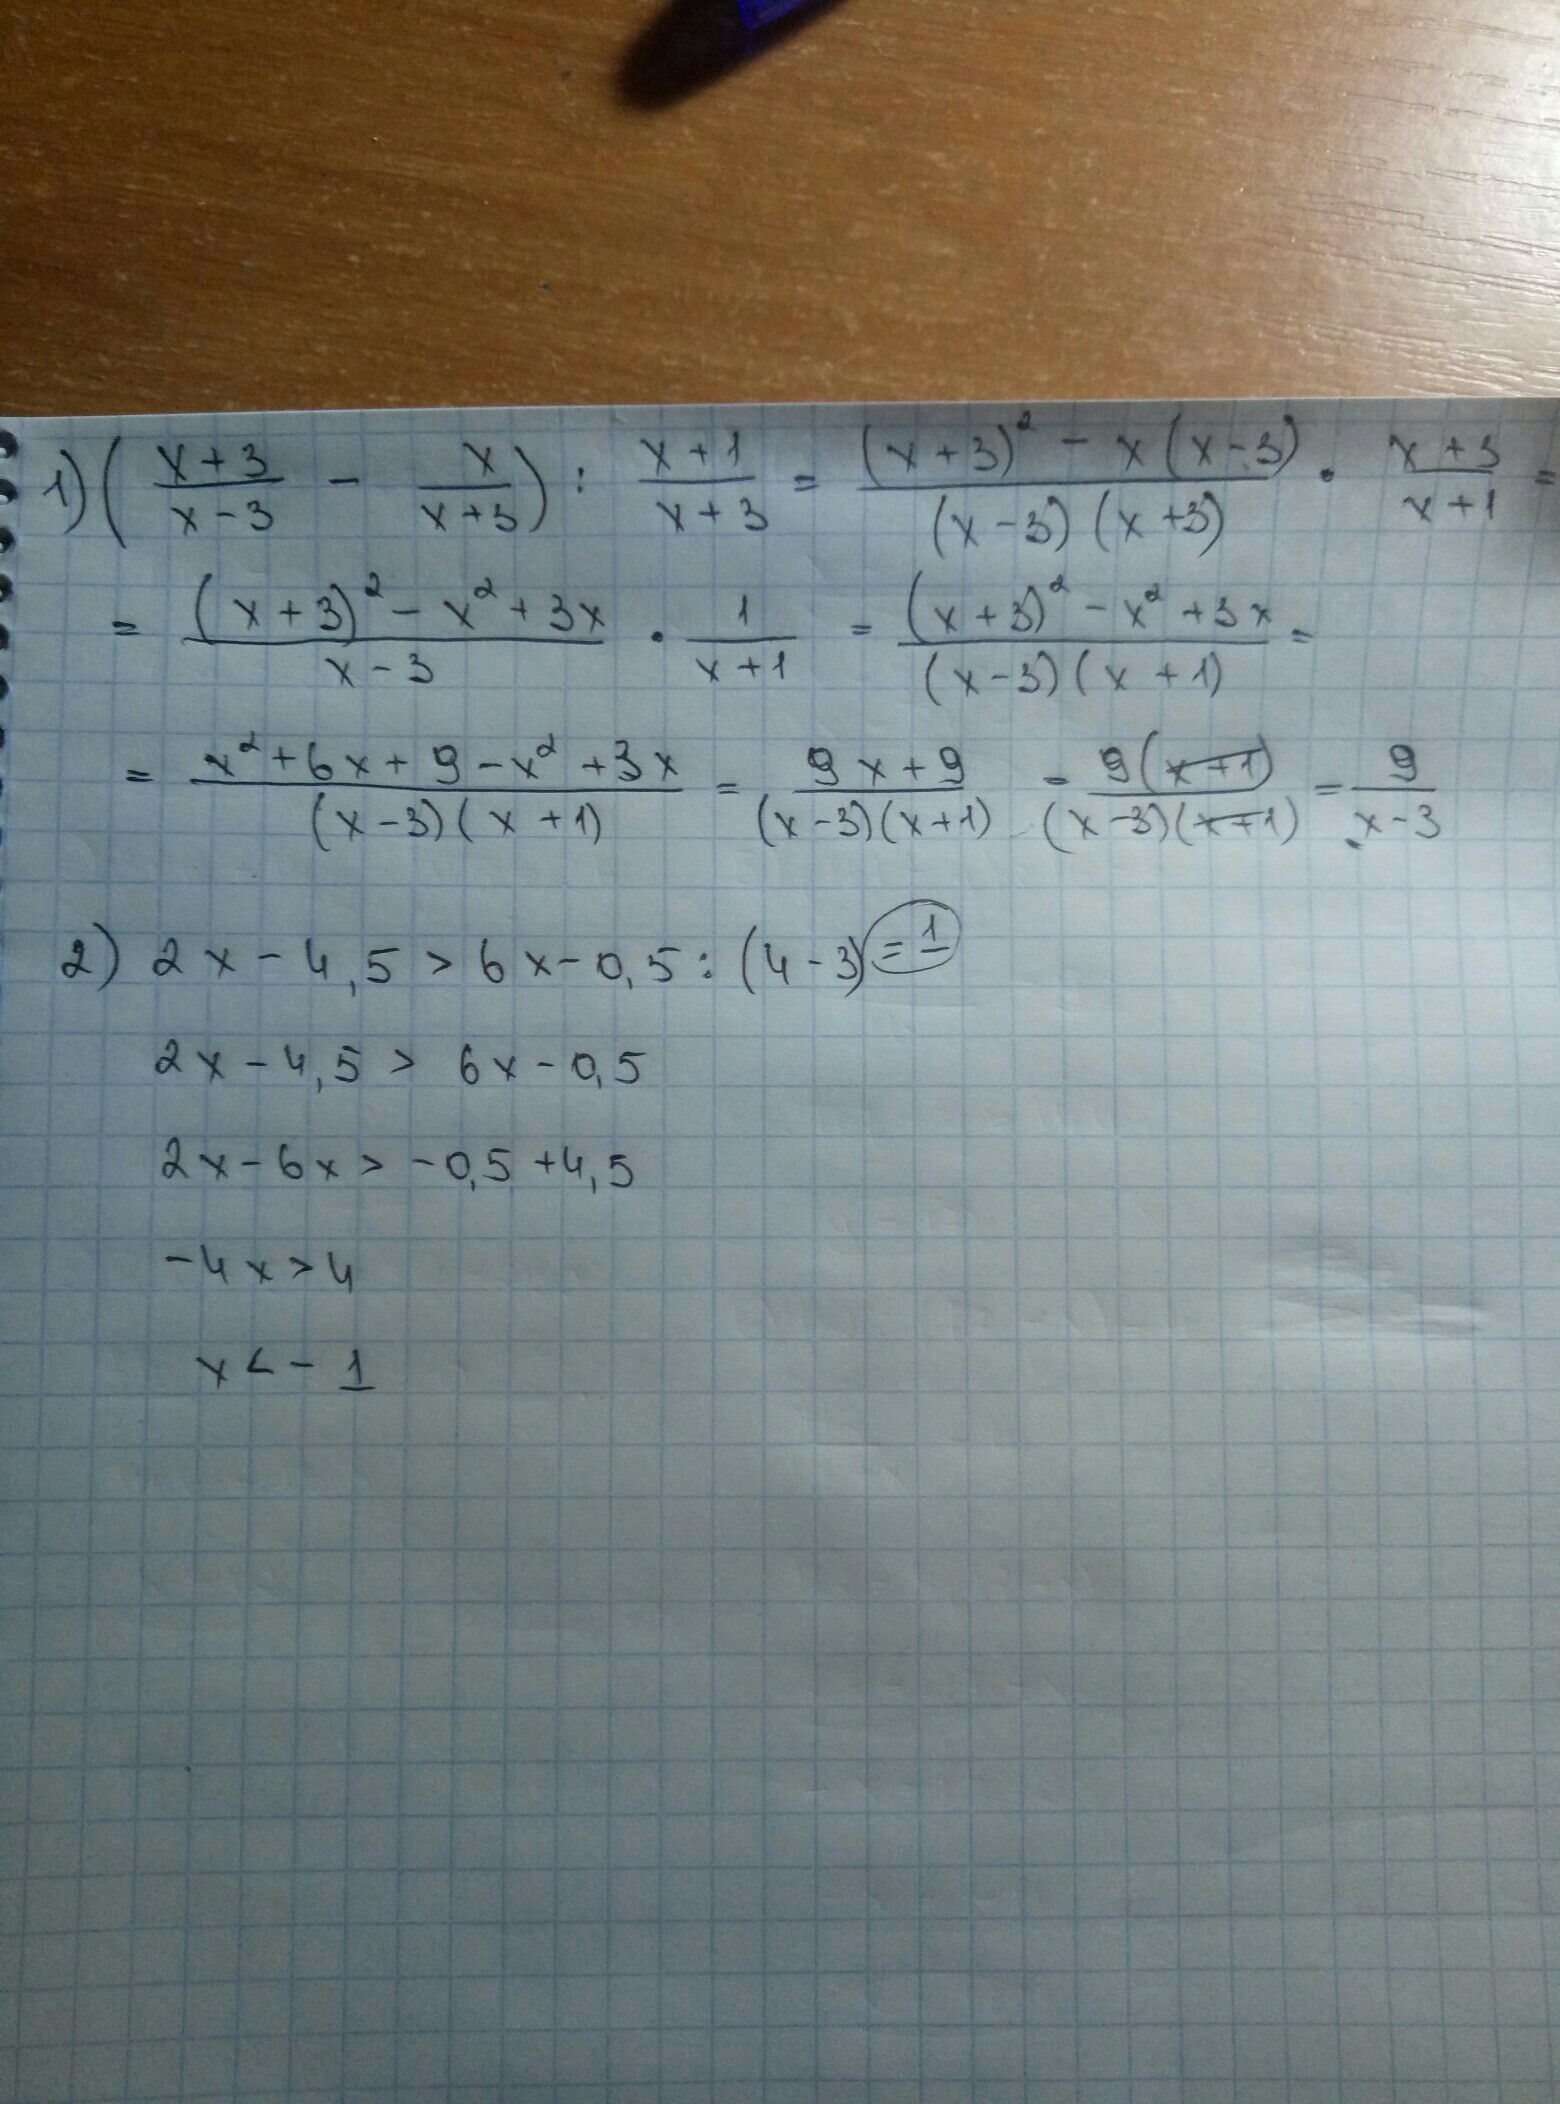 1) ( (x+3)/(x-3) - x/(x+3) ) : (x+1)/(x+3) = ((x+3)² - x(x-3))/((x-3)(x+3)) · (x+3)/(x+1) =
= ((x+3)² - x² + 3x)/(x-3) · 1/(x+1) = ((x+3)² - x² + 3x)/((x-3)(x+1)) =
= (x² + 6x + 9 - x² + 3x)/((x-3)(x+1)) = (9x+9)/((x-3)(x+1)) = 9(x+1)/((x-3)(x+1)) = 9/(x-3)
2) 2x - 4,5 > 6x - 0,5 : (4-3) = 1
2x - 4,5 > 6x - 0,5
2x - 6x > -0,5 + 4,5
-4x > 4
x < -1